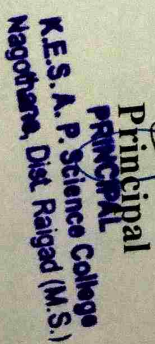 Principal
PRINCIPAL
K.E.S. A. P. Science College
Nagothane, Dist. Raigad (M.S.)